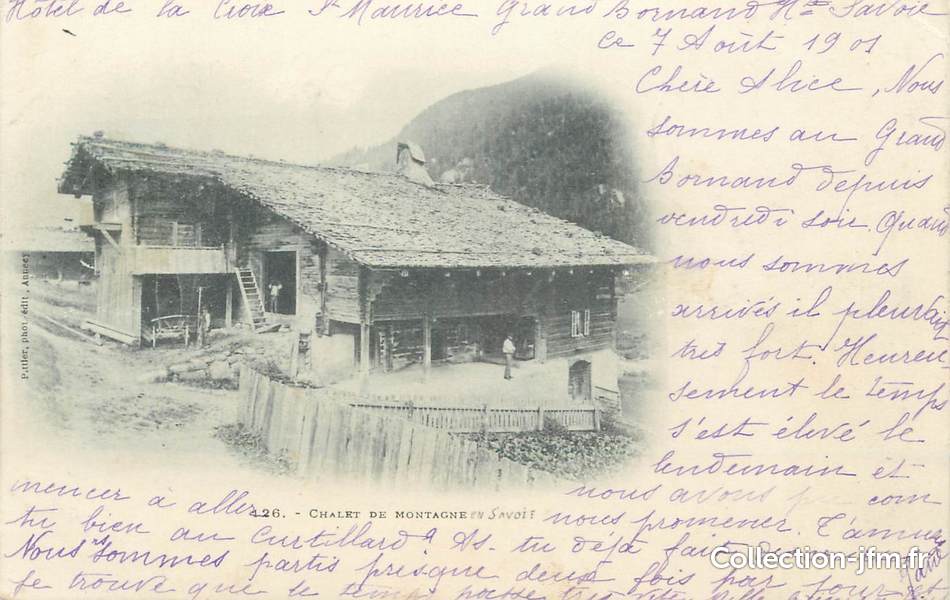 Hôtel de la Croix St Maurice Grand Bornand Hte Savoie
ce 7 Août 1901
Chère Alice, Nous
sommes au Grand
Bornand depuis
vendredi soir Quand
nous sommes
arrivés il pleuvait
très fort. Heureu
sement le temps
s'est élevé le
lendemain et
nous avons pu com
mencer à aller
nous promener T'amuses
tu bien au Curtillard? As-tu déjà fait
Nous sommes partis presque deux fois par jour et
je trouve que le temps passe très vite
126. - CHALET DE MONTAGNE EN SAVOIE
Pittier, phot. édit., Annecy
Collection-jfm.fr